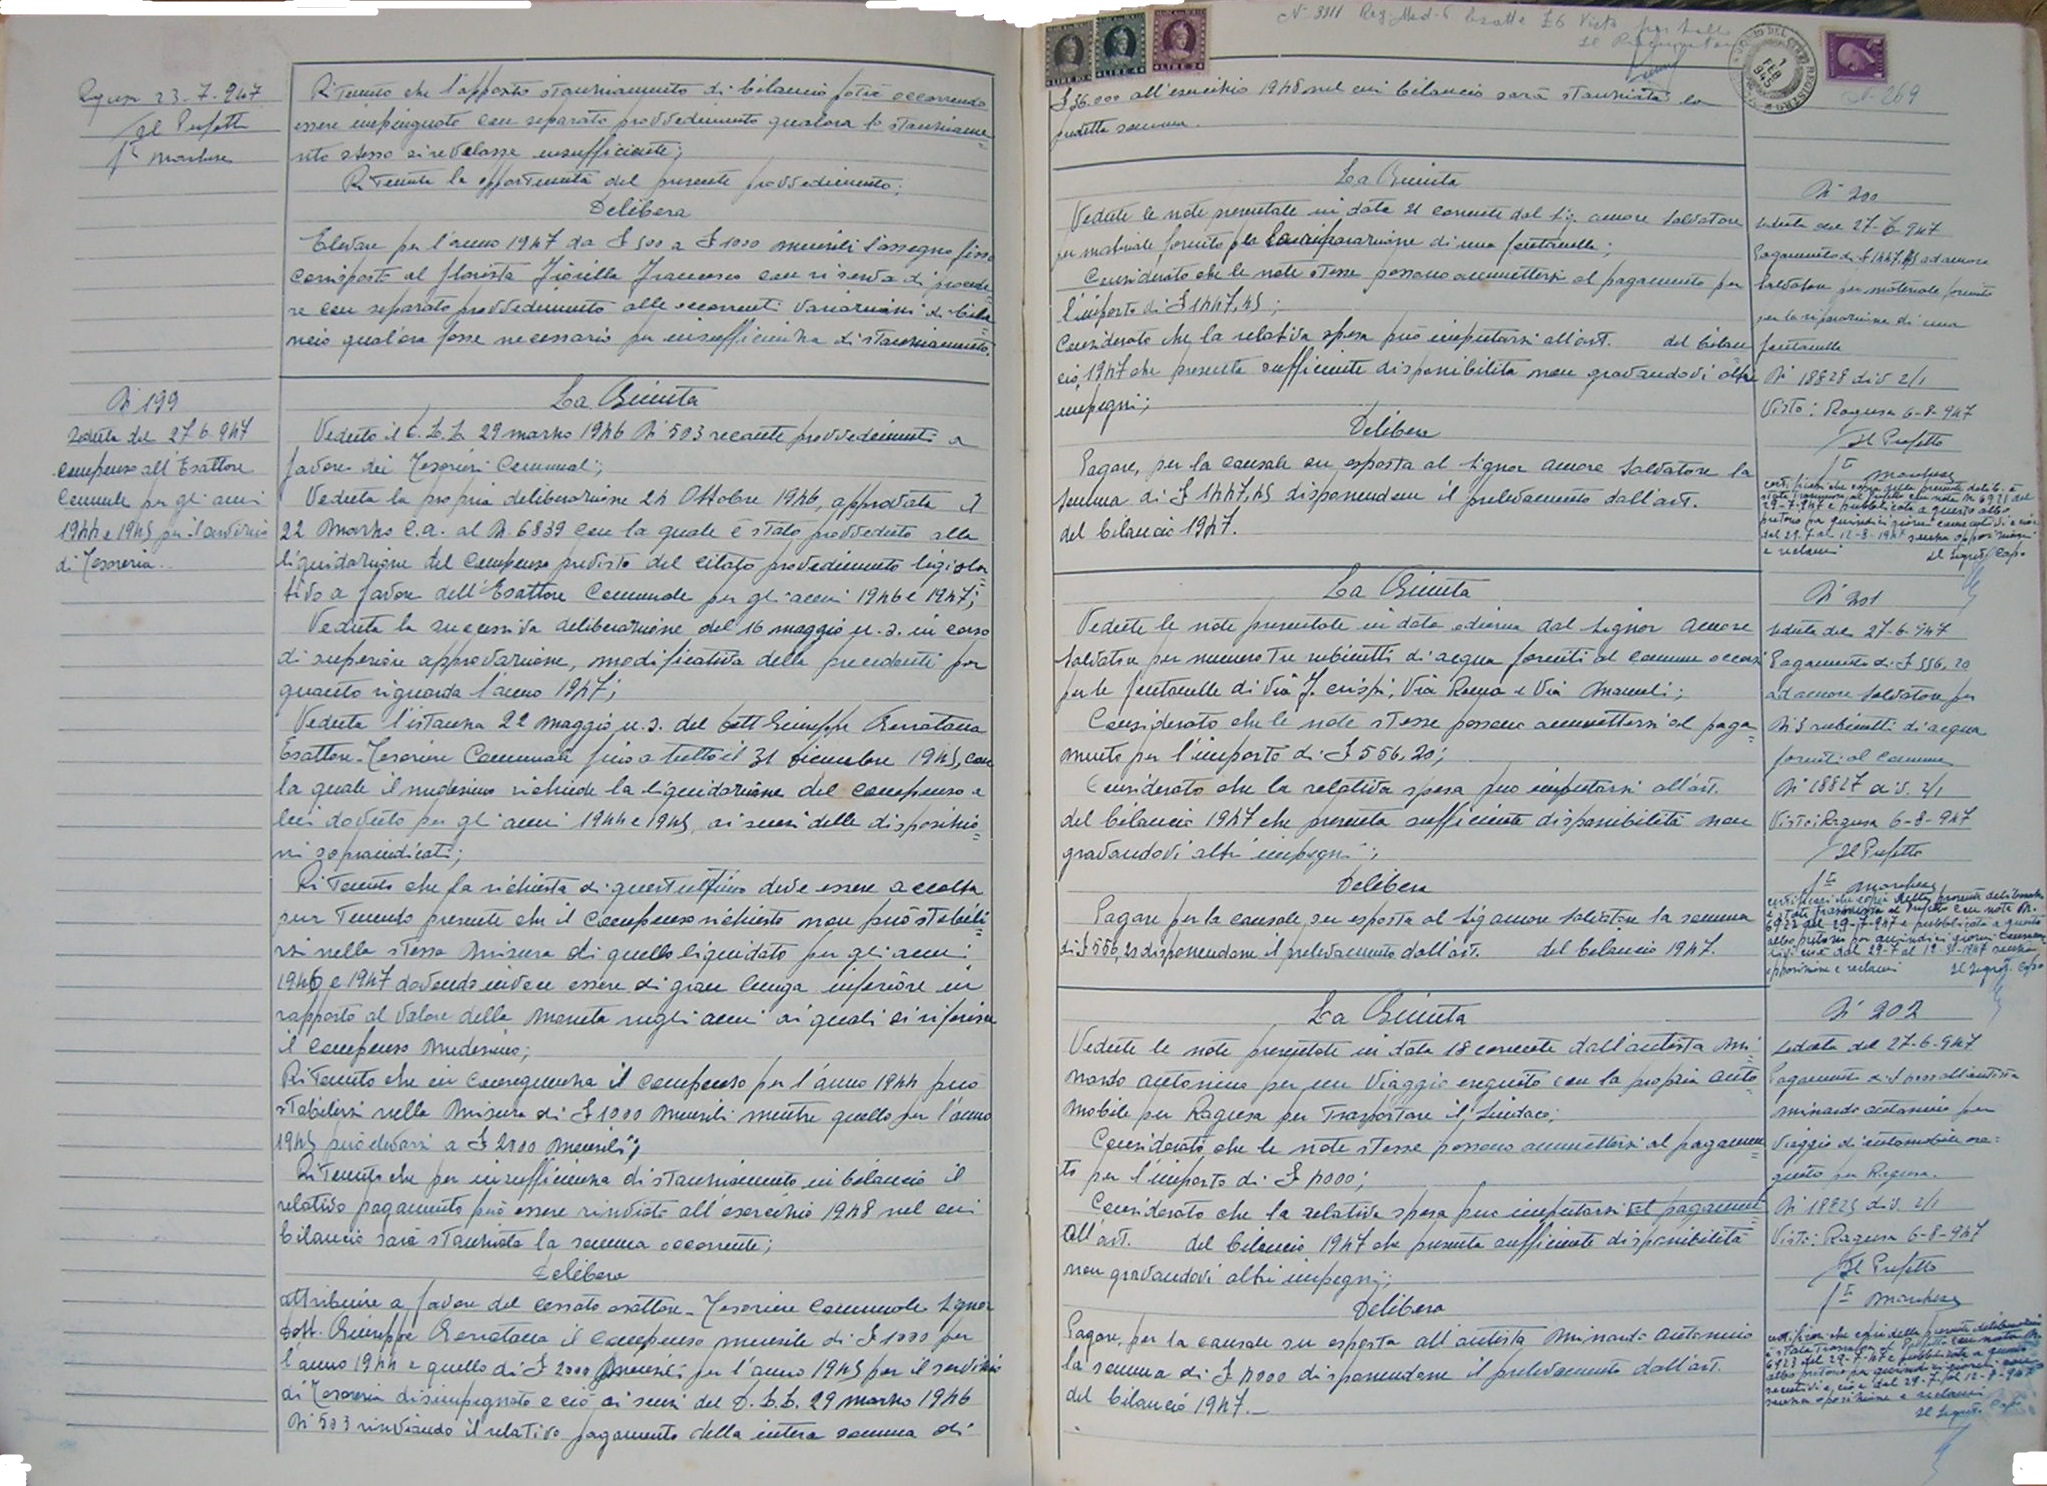 Ragusa 23-7-947
Il Prefetto
fto Marchese
Ritenuto che l'apposito stanziamento di bilancio potrà occorrendo
essere impinguato con separato provvedimento qualora lo stanziame=
nto stesso si rivelasse insufficiente;
Ritenuta la opportunità del presente provvedimento;
Delibera
Elevare per l'anno 1947 da £ 500 a £ 1000 mensili l'assegno fisso
corrisposto al florista Fiorilla Francesco con riserva di procede=
re con separato provvedimento alle occorrenti variazioni di bila=
ncio qualora fosse necessario per insufficienza di stanziamento.
N° 199
Seduta del 27-6-947
compenso all'Esattore
Comunale per gli anni
1944 e 1945 per il servizio
di Tesoreria.
La Giunta
Veduto il D.L.L. 29 marzo 1946 N° 503 recante provvedimenti a
favore dei Tesorieri Comunali;
Veduta la propria deliberazione 24 Ottobre 1946, approvata il
22 Marzo c.a. al N. 6839 con la quale è stato provveduto alla
liquidazione del compenso previsto dal citato provvedimento legisla=
tivo a favore dell'Esattore Comunale per gli anni 1946 e 1947;
Veduta la successiva deliberazione del 16 maggio u.s. in corso
di superiore approvazione, modificativa della precedente per
quanto riguarda l'anno 1947;
Veduta l'istanza 22 maggio u.s. del Dott Giuseppe Terratana
Esattore-Tesoriere Comunale fino a tutto il 31 dicembre 1945, con
la quale il medesimo richiede la liquidazione del compenso a
lui dovuto per gli anni 1944 e 1945, ai sensi delle disposizio=
ni sopraindicati;
Ritenuto che la richiesta di quest'ultimo deve essere accolta
pur tenendo presente che il compenso richiesto non può stabili=
rsi nella stessa misura di quello liquidato per gli anni
1946 e 1947 dovendo invece essere di gran lunga inferiore in
rapporto al valore della moneta negli anni ai quali si riferisce
il compenso medesimo;
Ritenuto che in conseguenza il compenso per l'anno 1944 può
stabilirsi nella misura di £ 1000 mensili mentre quello per l'anno
1945 può elevarsi a £ 2000 mensili;
Ritenuto che per insufficienza di stanziamento in bilancio il
relativo pagamento può essere rinviato all'esercizio 1948 nel cui
bilancio sarà stanziata la somma occorrente;
Delibera
attribuire a favore del cessato esattore-Tesoriere Comunale Signor
Dott. Giuseppe Terratana il compenso mensile di £ 1000 per
l'anno 1944 e quello di £ 2000 mensili per l'anno 1945 per il servizio
di Tesoreria disimpegnato e ciò ai sensi del D.L.L. 29 marzo 1946
N° 503 rinviando il relativo pagamento della intera somma di
N° 3911 Reg. Mod. 6 Esatte £ 6 Visto per bollo
Il Procuratore
LIRE 10 LIRE 4 LIRE 2
N. 269
£ 36.000 all'esercizio 1948 nel cui bilancio sarà stanziata la
predetta somma.
La Giunta
Vedute le note presentate in data 21 corrente dal Sig. Amore Salvatore
per materiale fornito per la riparazione di una fontanella;
Considerato che le note stesse possono ammettersi al pagamento per
l'importo di £ 1447,45;
Considerato che la relativa spesa può imputarsi all'art. del bilan
cio, 1947 che presenta sufficiente disponibilità non gravandovi altri
impegni;
Delibera
Pagare, per la causale su esposta al Signor Amore Salvatore la
somma di £ 1447,45 disponendone il prelevamento dall'art.
del bilancio 1947.
N° 200
Seduta del 27-6-947
Pagamento di £ 1447,45 ad Amore
Salvatore per materiale fornito
per la riparazione di una
fontanella
N° 18828 div 2/1
Visto: Ragusa 6-8-947
Il Prefetto
fto Marchese
certifico che copia della presente delib. è
stata trasmessa al Prefetto con nota N. 6921 del
29-7-947 e pubblicata a questo albo
pretorio per quindici giorni consecutivi e cioè
dal 29.7 al 12-8-1947 senza opposizioni
e reclami Il Segret. Capo
La Giunta
Vedute le note presentate in data odierna dal Signor Amore
Salvatore per numero tre rubinetti di acqua forniti al comune occorsi
per le fontanelle di Via F. Crispi, Via Roma e Via Mameli;
Considerato che le note stesse possono ammettersi al paga=
mento per l'importo di £ 556,20;
Considerato che la relativa spesa può imputarsi all'art.
del bilancio 1947 che presenta sufficiente disponibilità non
gravandovi altri impegni;
Delibera
Pagare per la causale su esposta al Sig Amore Salvatore la somma
di £ 556,20 disponendone il prelevamento dall'art. del bilancio 1947.
N° 201
Seduta del 27-6-947
Pagamento di £ 556,20
ad Amore Salvatore per
N° 3 rubinetti di acqua
forniti al Comune
N° 18827 div. 2/1
Visto: Ragusa 6-8-947
Il Prefetto
fto Marchese
certifico che copia della presente deliberazione
è stata trasmessa al Prefetto con nota N.
6922 del 29-7-947 e pubblicata a questo
albo pretorio per quindici giorni consecu
tivi cioè dal 29-7 al 12-8-1947 senza
opposizioni e reclami Il Segret. Capo
La Giunta
Vedute le note presentate in data 18 corrente dall'autista Mi=
nardo Antonino per un viaggio eseguito con la propria auto
mobile per Ragusa per trasportare il Sindaco;
Considerato che le note stesse possono ammettersi al pagamen=
to per l'importo di £ 4000;
Considerato che la relativa spesa può imputarsi al pagament
all'art. del bilancio 1947 che presenta sufficiente disponibilità
non gravandovi altri impegni;
Delibera
Pagare, per la causale su esposta all'autista Minardo Antonino
la somma di £ 4000 disponendone il prelevamento dall'art.
del bilancio 1947.—
N° 202
Seduta del 27-6-947
Pagamento di £ 4000 all'autista
Minardo Antonino per
viaggio di automobile ese=
guito per Ragusa.
N° 18825 div. 2/1
Visto: Ragusa 6-8-947
Il Prefetto
fto Marchese
certifico che copia della presente deliberazione
è stata trasmessa al Prefetto con nota N.
6923 del 29-7-47 e pubblicata a questo
albo pretorio per quindici giorni con=
secutivi e cioè dal 29-7 al 12-8-947
senza opposizione e reclami
Il Segret. Capo